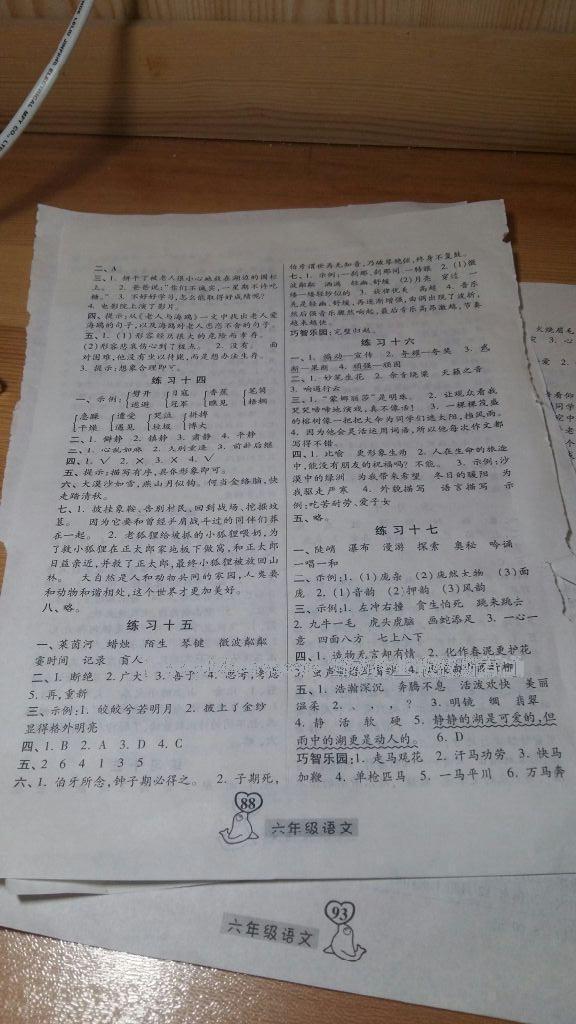 二、A
三、1. 饼干了被老人很小心地放在湖边的围栏
上。 2. 爸爸说:“你们不诚实,一星期不许吃
糖。” 3. 不好好学习,怎么能取得好成绩呢?
4. 电影院上演了影片。
四、提示:从《老人与海鸥》一文中找出老人爱
海鸥的句子,以及海鸥对老人恋恋不舍的句子。
五、1. (1)形容经历极大的危险而幸存。
(2)形容悲哀伤心到了极点。 2. 没有。 面
对困难,他没有坐以待毙,而是想办法生存。
3. 提示:想象合理即可。
练习十四
一、示例:
劈开 月底 香蕉 笔筒
逃避 冠军 瞧见 梧桐
急躁 遭爱 哭泣 拼搏
干燥 遇见 粒板 博大
二、1. 僻静 2. 镇静 3. 肃静 4. 平静
三、1. 心乱如麻 2. 大刑重逢 3. 前赴后继
四、1. √ 2. × 3. × 4. √
五、提示:描写有序,具体形象即可。
六、大漠沙如雪,燕山月似钩。何当金络脑,快
走踏清秋。
七、1. 披挂象鞍、告别村民、回到战场、挖掘坟
墓。 因为它要和曾经并肩战斗过的同伴们葬
在一起。 2. 老狐狸给被抓的小狐狸喂奶,为
了救小狐狸在正太郎家地板下做窝,和正太郎
日益亲近,并救了正太郎,最终小狐狸被放回山
林。 大自然是人和动物共同的家园,人类要
和动物和谐相处,这个世界才更加美好。
八、略。
练习十五
一、莱茵河 蜡烛 陌生 琴键 微波粼粼
霎时间 记录 盲人
二、1. 断绝 2. 广大 3. 每于 4. 思考,考虑
5. 再,重新
三、示例:1. 皎皎兮若明月 2. 披上了金纱
显得格外明亮
四、1. B 2. A 3. D 4. C
五、2 6 4 1 3 5
六、1. 伯牙所念,钟子期必得之。 2. 子期死,
伯牙谓世再无知音,乃破琴绝弦,终身不复鼓。
七、1. 示例:一刹那、刹那间 一转眼 2. (1)微
波粼粼 洒满 轻幽、舒缓 (2)月亮 穿过 一
缕一缕轻纱似的 3. 旋律优美 高超 4. 音乐
先是轻幽、舒缓,再逐渐增强,曲调出现了波折,
然后强音乐骤然响起,最后音乐高昂激越,节奏
越来越快。
巧智乐园:完璧归赵。
练习十六
二、1. 妙笔生花 2. 余音绕梁 天籁之音
3. 响遏行云
三、1. “蒙娜丽莎”是明珠。 2. 让观众看我
哭哭啼啼地演戏,真不像话! 3. 一棵棵茂盛
的榕树像一把把大伞为同学们遮太阳,挡风雨。
4. 因为他会灵活运用词语,所以他每次作文都
写得不错。
四、1. 比喻 更形象生动 2. 人在生命的旅途
中,能没有朋友的祝福吗?不能。 3. 示例:沙
漠中的绿洲 为我带来希望 冬日的暖阳 为
我驱走严寒 4. 外貌描写 语言描写 示
例:吃苦耐劳、爱子女
五、略。
练习十七
一、陡峭 瀑布 漫游 探索 奥秘 吟诵
一唱一和
二、示例:1. (1)庞杂 (2)庞然大物 (3)面
庞 2. (1)音韵 (2)押韵 (3)风韵
三、示例:1. 左冲右撞 贪生怕死 跳来跳去
2. 九牛一毛 虎头虎脑 画蛇添足 3. 一心一
意 四面八方 七上八下
四、1. 造物无言却有情 2. 化作春泥更护花
五、1. 浩瀚深沉 奔腾不息 活泼欢快 美丽
温柔 2. 、 , , ? 3. 明镜 绸 翡翠
4. 静 活 软 硬 5. 静静的湖是可爱的,但
雨中的湖更是动人的。 6. D
巧智乐园:1. 走马观花 2. 汗马功劳 3. 快马
加鞭 4. 单枪匹马 5. 一马平川 6. 万马奔
88
六年级语文
93
六年级语文